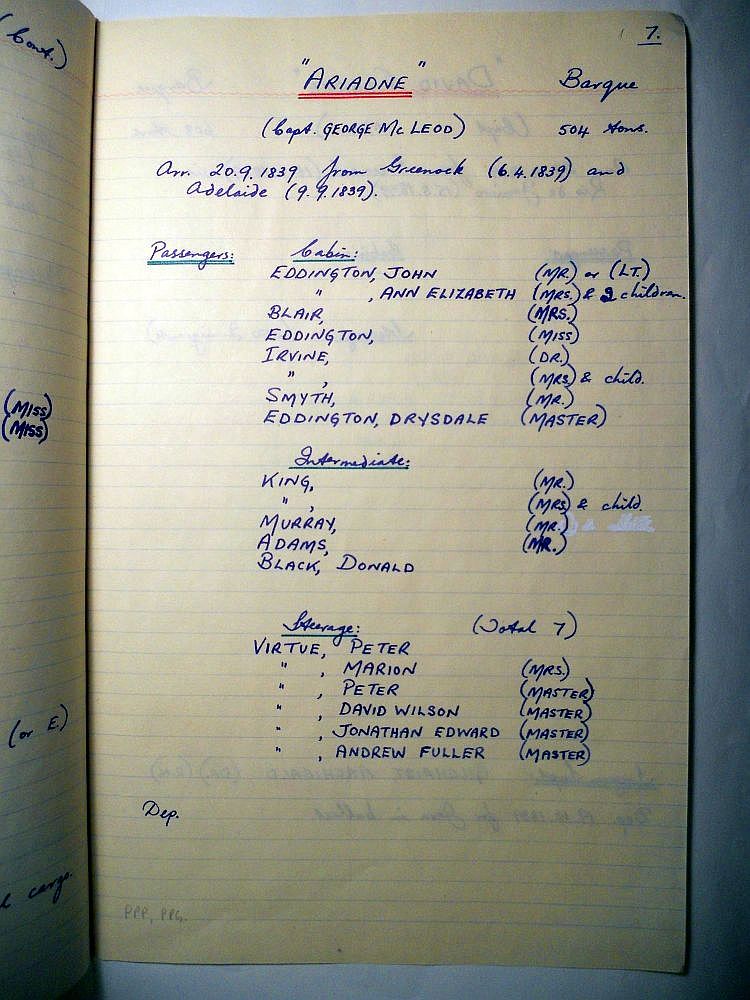 7.
"ARIADNE" Barque
(Capt. GEORGE McLEOD) 504 tons.
Arr. 20.9.1839 from Greenock (6.4.1839) and
Adelaide (9.9.1839).
Passengers: Cabin:
EDDINGTON, JOHN (MR.) or (LT.)
" , ANN ELIZABETH (MRS.) & 2 children.
BLAIR, (MRS.)
EDDINGTON, (MISS)
IRVINE, (DR.)
" , (MRS) & child.
SMYTH, (MR.)
EDDINGTON, DRYSDALE (MASTER)
Intermediate:
KING, (MR.)
" , (MRS) & child.
MURRAY, (MR.)
ADAMS, (MR.)
BLACK, DONALD
Steerage: (Total 7)
VIRTUE, PETER
" , MARION (MRS.)
" , PETER (MASTER)
" , DAVID WILSON (MASTER)
" , JONATHAN EDWARD (MASTER)
" , ANDREW FULLER (MASTER)
Dep.
PPP, PPG.
(Cont.)
(MISS)
(MISS)
(or E.)
cargo.